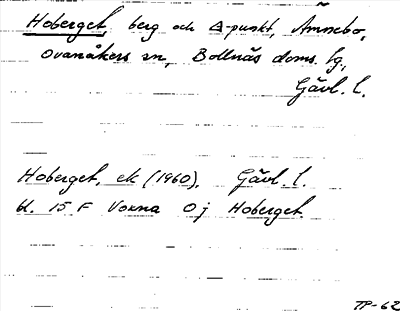 Hoberget, berg och Δ-punkt, Amnebo,
Ovanåkers sn, Bollnäs doms. lg.,
Gävl. l.
Hoberget, ek (1960), Gävl. l.
bl. 15 F Voxna 0 j Hoberget.
TP-62